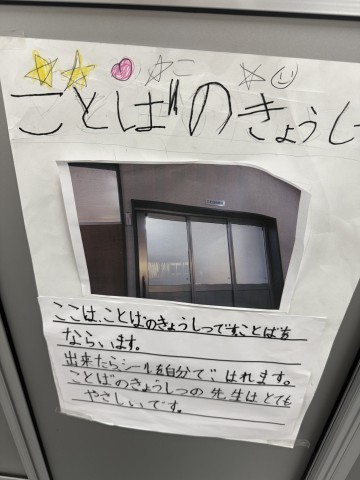 ことばのきょうし
ここは、ことばのきょうしつです。ことばを
ならいます。
出来たらシールを自分で、はれます。
ことばのきょうしつの先生はとても
やさしいです。